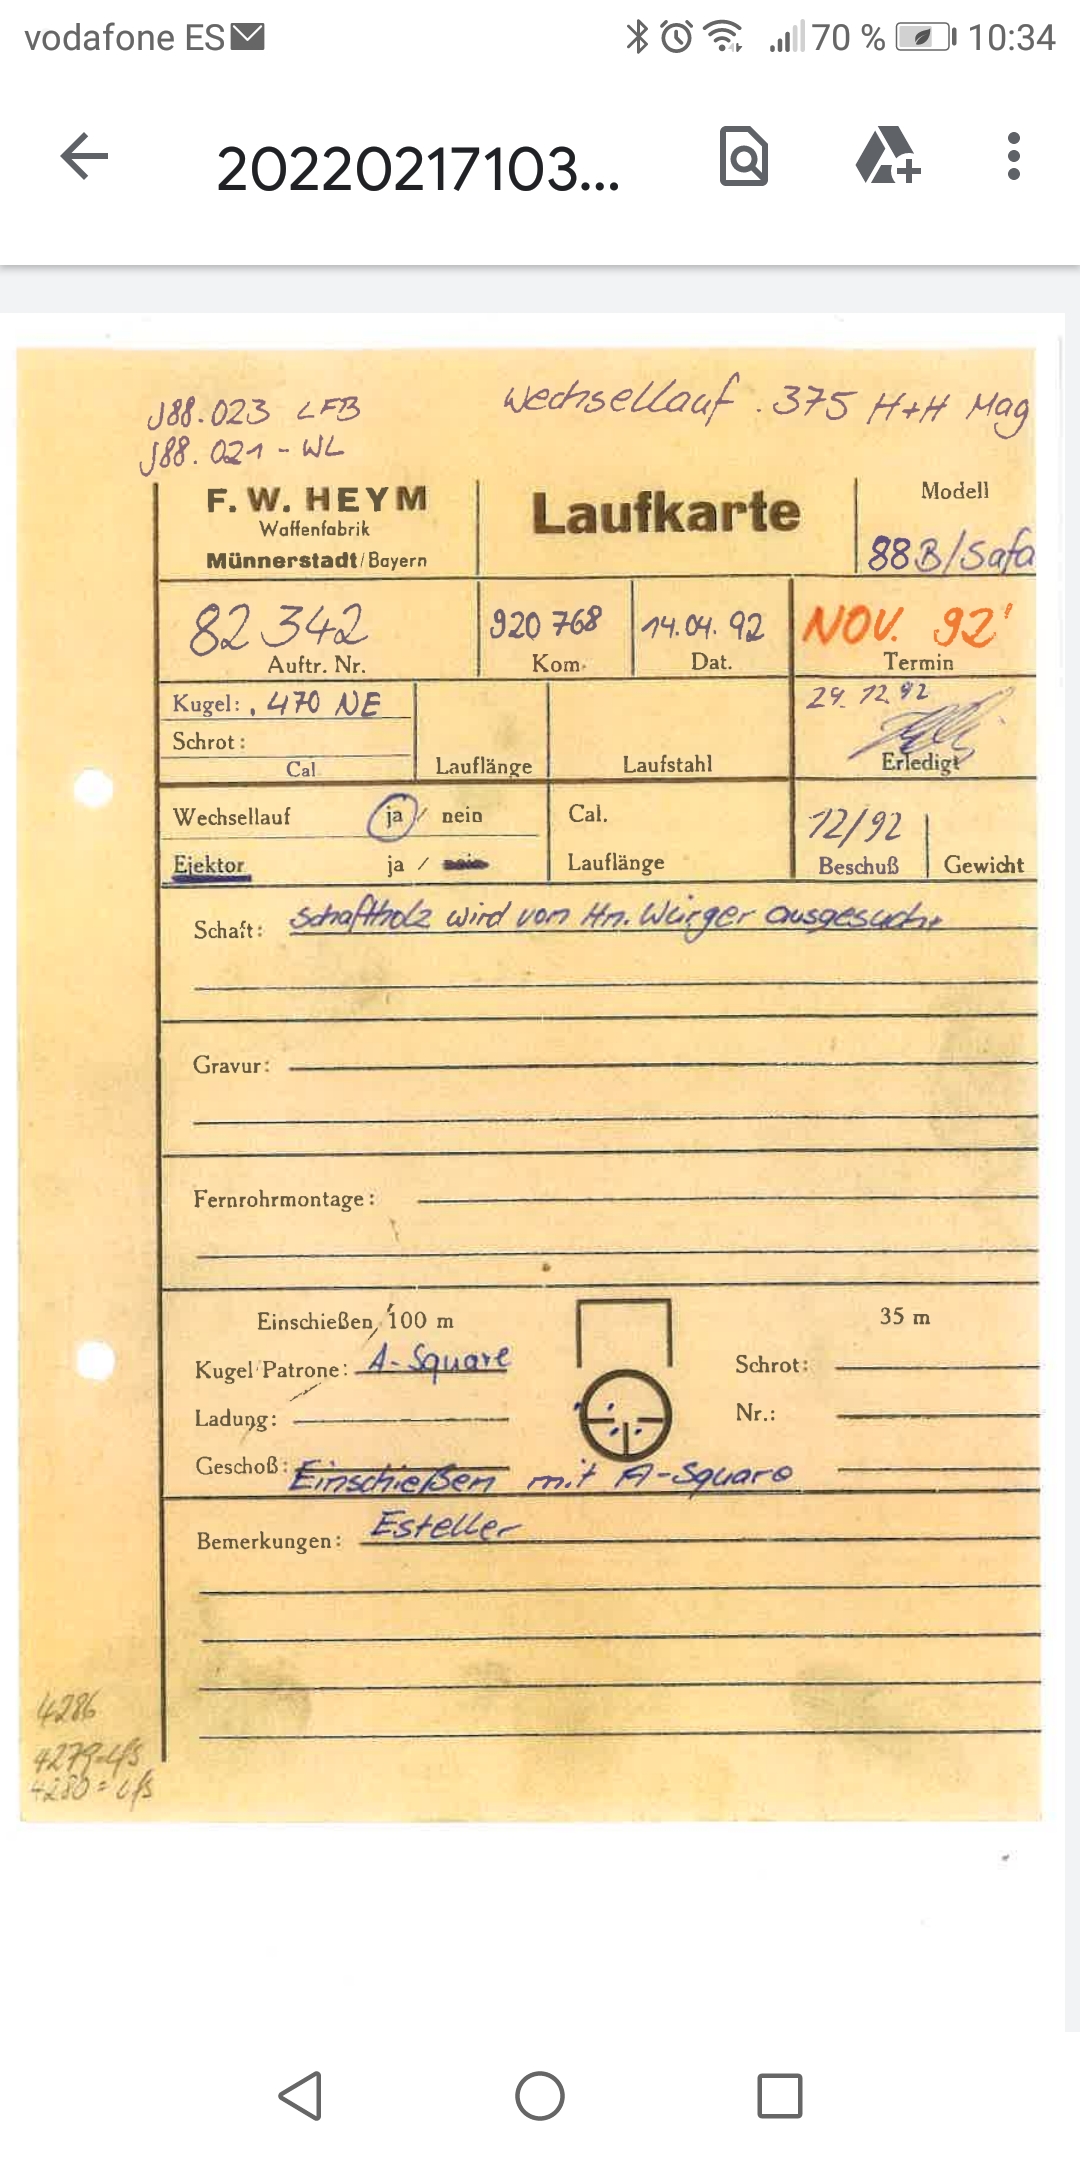 vodafone ES 70 % 10:34
20220217103...
J88.023 LFB
Wechsellauf .375 H+H Mag
J88.021 - WL
F. W. HEYM
Waffenfabrik
Münnerstadt/Bayern
Laufkarte
Modell
88B/Safa
82 342
Auftr. Nr.
920 768
Kom.
14.04.92
Dat.
NOV. 92'
Termin
Kugel: .470 NE
Schrot:
Cal
Lauflänge
Laufstahl
29.12.92
Erledigt
Wechsellauf ja / nein
Cal.
Ejektor ja /
Lauflänge
12/92
Beschuß
Gewicht
Schaft: Schaftholz wird vom Hn. Würger ausgesucht
Gravur:
Fernrohrmontage:
Einschießen, 100 m
35 m
Kugel Patrone: A-Square
Schrot:
Ladung:
Nr.:
Geschoß: Einschießen mit A-Square
Bemerkungen: Esteller
4286